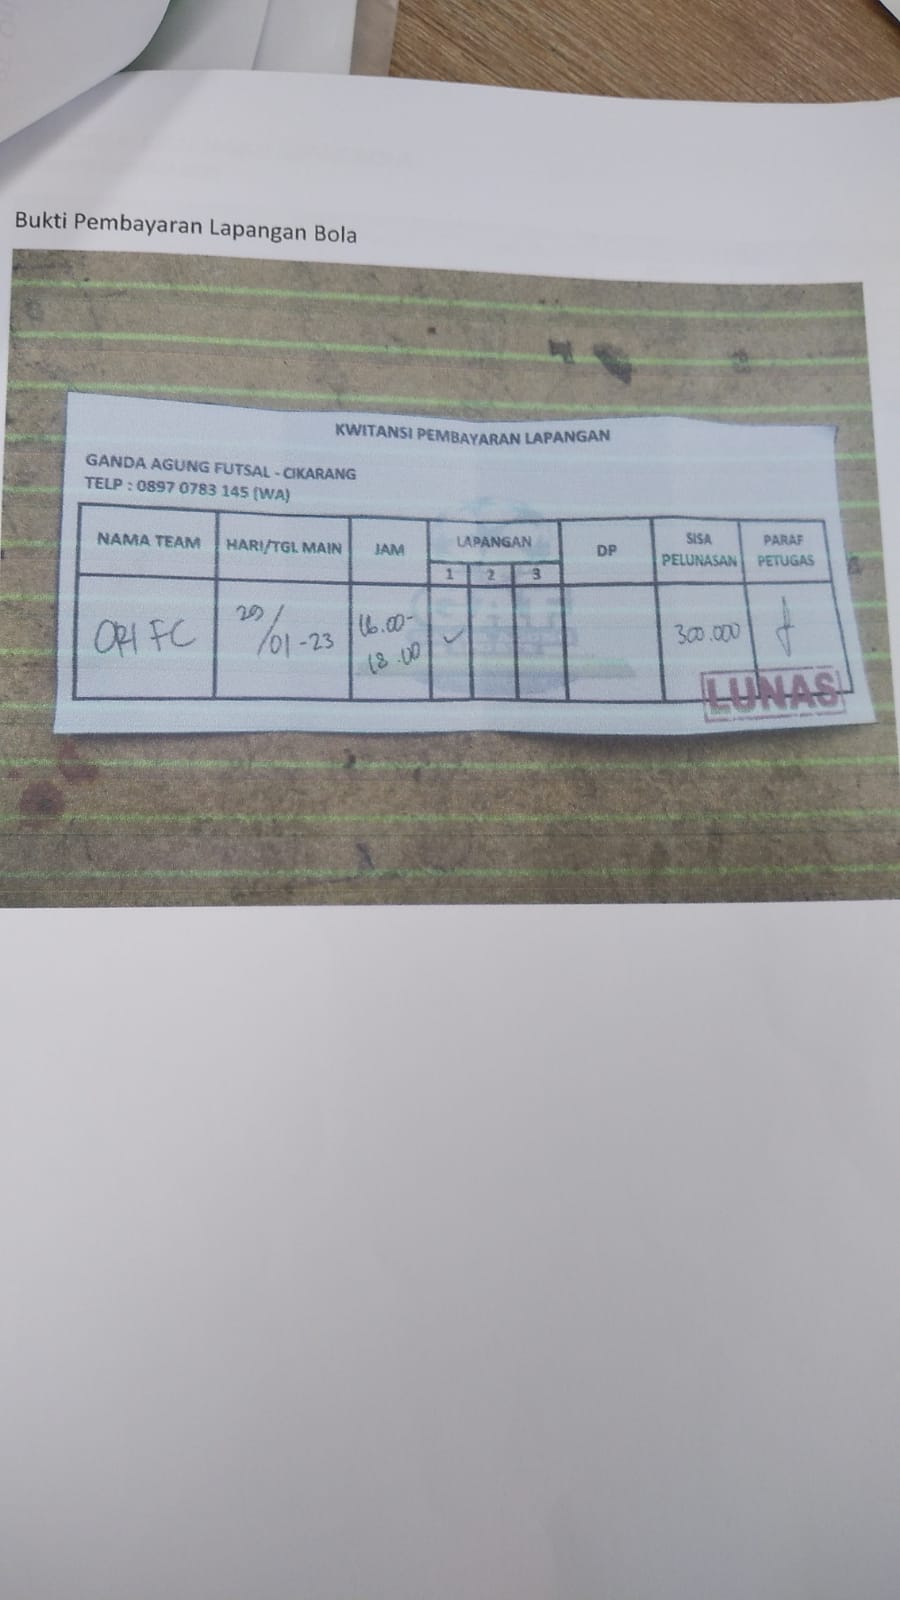 Bukti Pembayaran Lapangan Bola
KWITANSI PEMBAYARAN LAPANGAN
GANDA AGUNG FUTSAL - CIKARANG
TELP : 0897 0783 145 (WA)
NAMA TEAM HARI/TGL MAIN JAM LAPANGAN DP SISA PELUNASAN PARAF PETUGAS
1 2 3
FC 29/01-23 16.00-18.00 ✓ 300.000
LUNAS